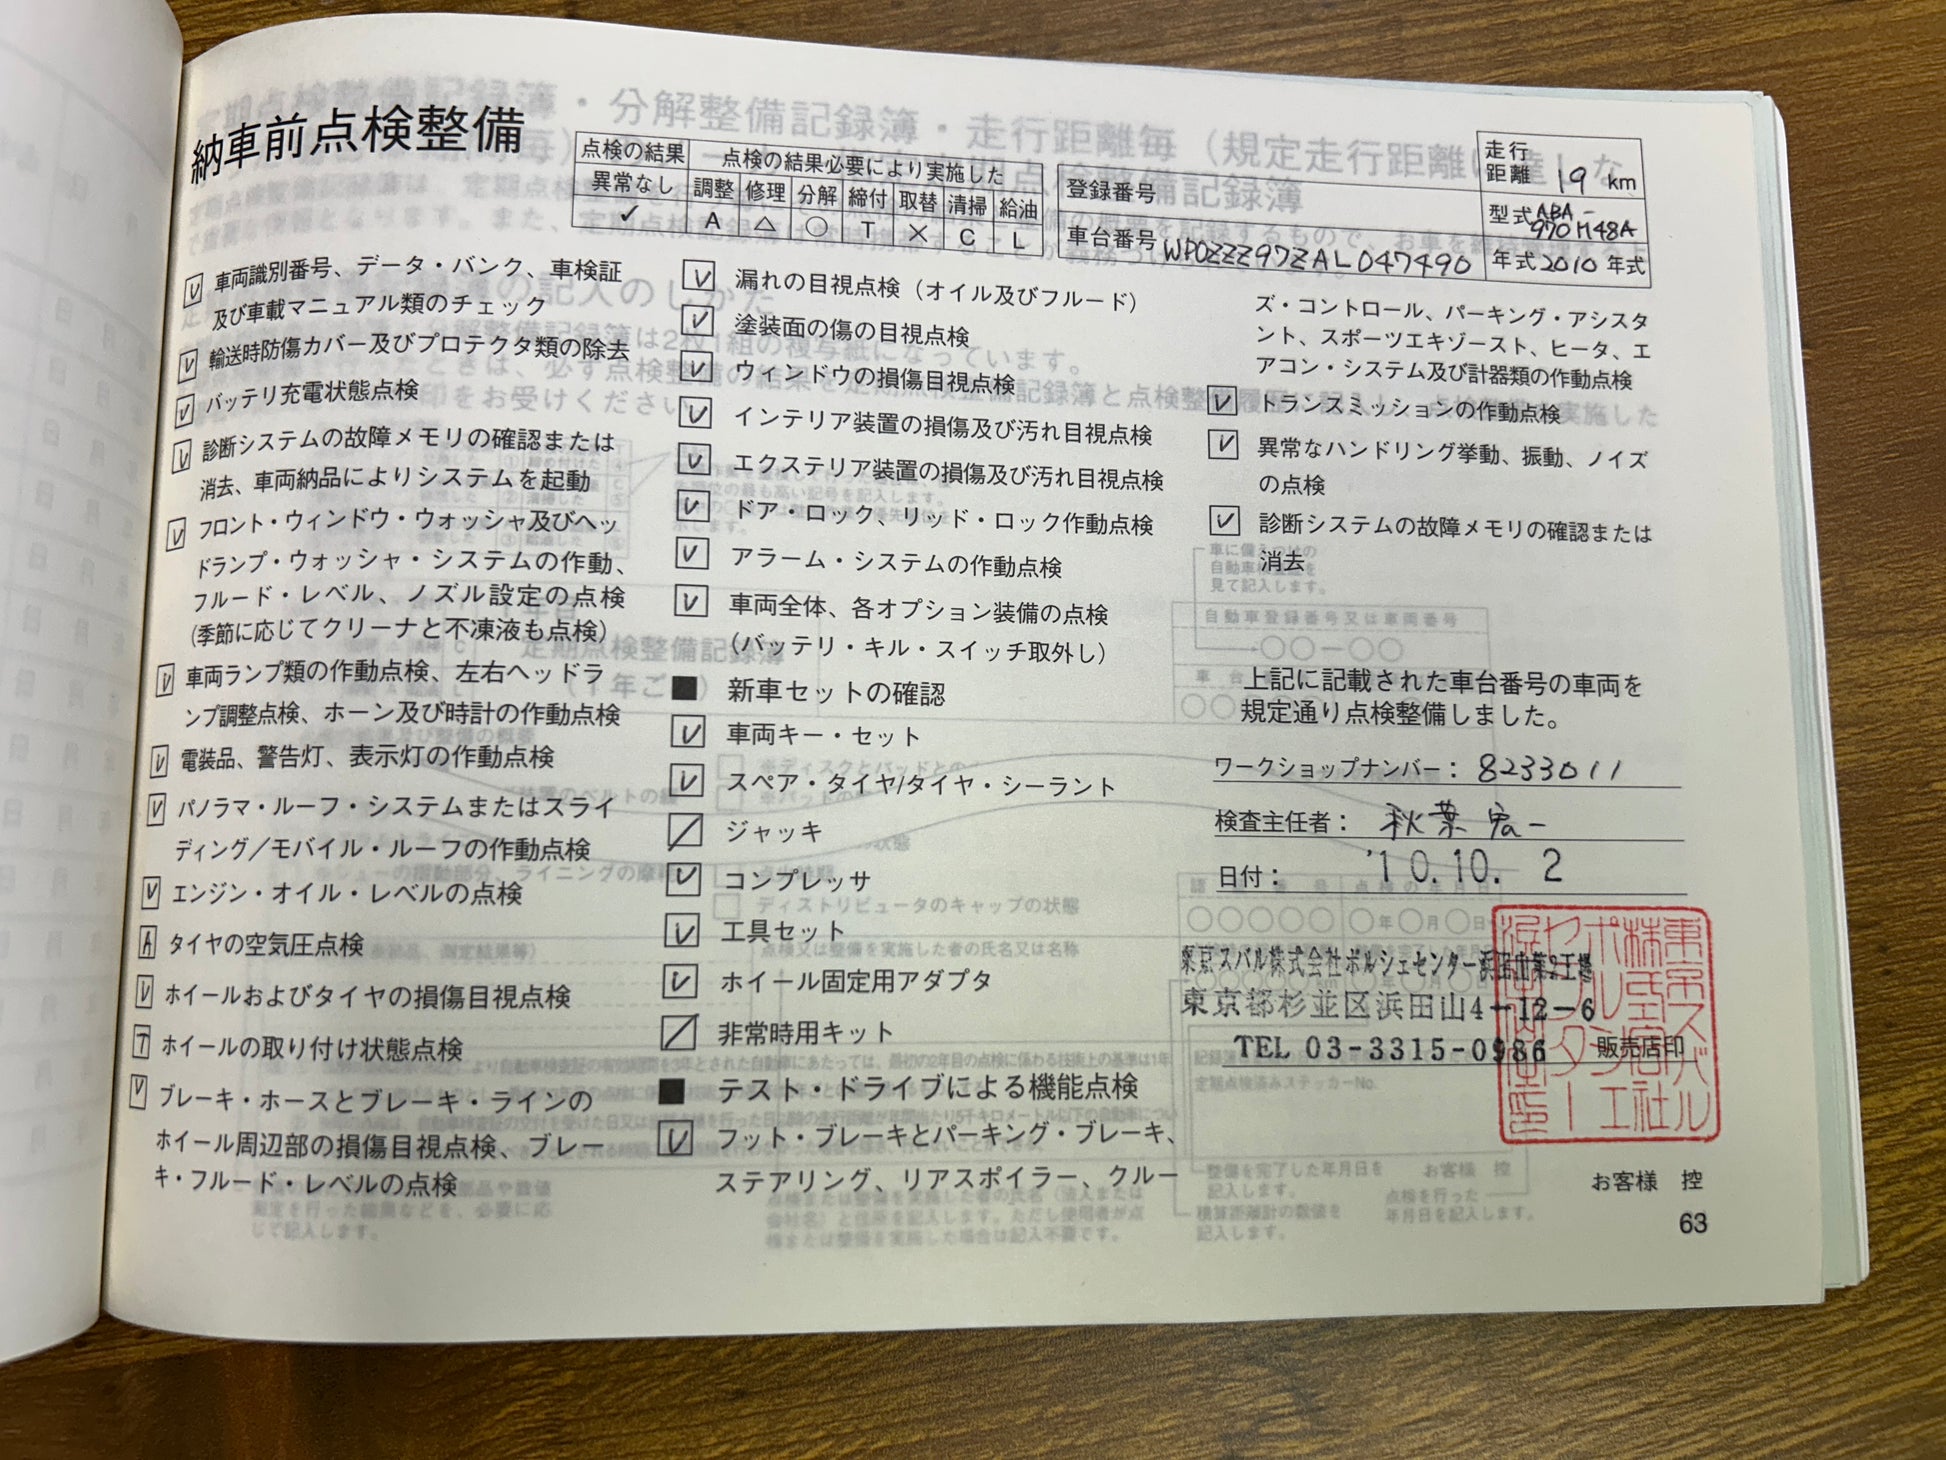 納車前点検整備
点検の結果 点検の結果必要により実施した
異常なし 調整 修理 分解 締付 取替 清掃 給油
✓ A △ ○ T × C L
登録番号
車台番号 WP0ZZZ97ZAL047490
走行距離 19 km
型式 ABA-970M48A
年式 2010 年式
レ 車両識別番号、データ・バンク、車検証
及び車載マニュアル類のチェック
レ 輸送時防傷カバー及びプロテクタ類の除去
レ バッテリ充電状態点検
レ 診断システムの故障メモリの確認または
消去、車両納品によりシステムを起動
レ フロント・ウィンドウ・ウォッシャ及びヘッ
ドランプ・ウォッシャ・システムの作動、
フルード・レベル、ノズル設定の点検
(季節に応じてクリーナと不凍液も点検)
レ 車両ランプ類の作動点検、左右ヘッドラ
ンプ調整点検、ホーン及び時計の作動点検
レ 電装品、警告灯、表示灯の作動点検
レ パノラマ・ルーフ・システムまたはスライ
ディング/モバイル・ルーフの作動点検
レ エンジン・オイル・レベルの点検
A タイヤの空気圧点検
レ ホイールおよびタイヤの損傷目視点検
T ホイールの取り付け状態点検
レ ブレーキ・ホースとブレーキ・ラインの
ホイール周辺部の損傷目視点検、ブレー
キ・フルード・レベルの点検
レ 漏れの目視点検(オイル及びフルード)
レ 塗装面の傷の目視点検
レ ウィンドウの損傷目視点検
レ インテリア装置の損傷及び汚れ目視点検
レ エクステリア装置の損傷及び汚れ目視点検
レ ドア・ロック、リッド・ロック作動点検
レ アラーム・システムの作動点検
レ 車両全体、各オプション装備の点検
(バッテリ・キル・スイッチ取外し)
■ 新車セットの確認
レ 車両キー・セット
レ スペア・タイヤ/タイヤ・シーラント
/ ジャッキ
レ コンプレッサ
レ 工具セット
レ ホイール固定用アダプタ
/ 非常時用キット
■ テスト・ドライブによる機能点検
レ フット・ブレーキとパーキング・ブレーキ、
ステアリング、リアスポイラー、クルー
ズ・コントロール、パーキング・アシスタ
ント、スポーツエキゾースト、ヒータ、エ
アコン・システム及び計器類の作動点検
レ トランスミッションの作動点検
レ 異常なハンドリング挙動、振動、ノイズ
の点検
レ 診断システムの故障メモリの確認または
消去
上記に記載された車台番号の車両を
規定通り点検整備しました。
ワークショップナンバー: 8233011
検査主任者: 秋葉 宏一
日付: '10.10. 2
東京スバル株式会社ポルシェセンター浜田山第2工場
東京都杉並区浜田山4-12-6
TEL 03-3315-0986
販売店印
東京スバル
株式会社
ポルシェ
センター
浜田山
お客様 控
63